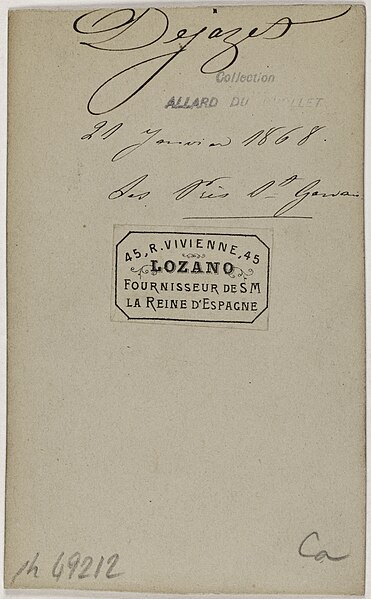 Dejazet
Collection
ALLARD DU CHOLLET
21 Janvier 1868.
Les Prés St Gervais
45, R. VIVIENNE, 45
LOZANO
FOURNISSEUR DE S M
LA REINE D'ESPAGNE
Ca
ph 49212